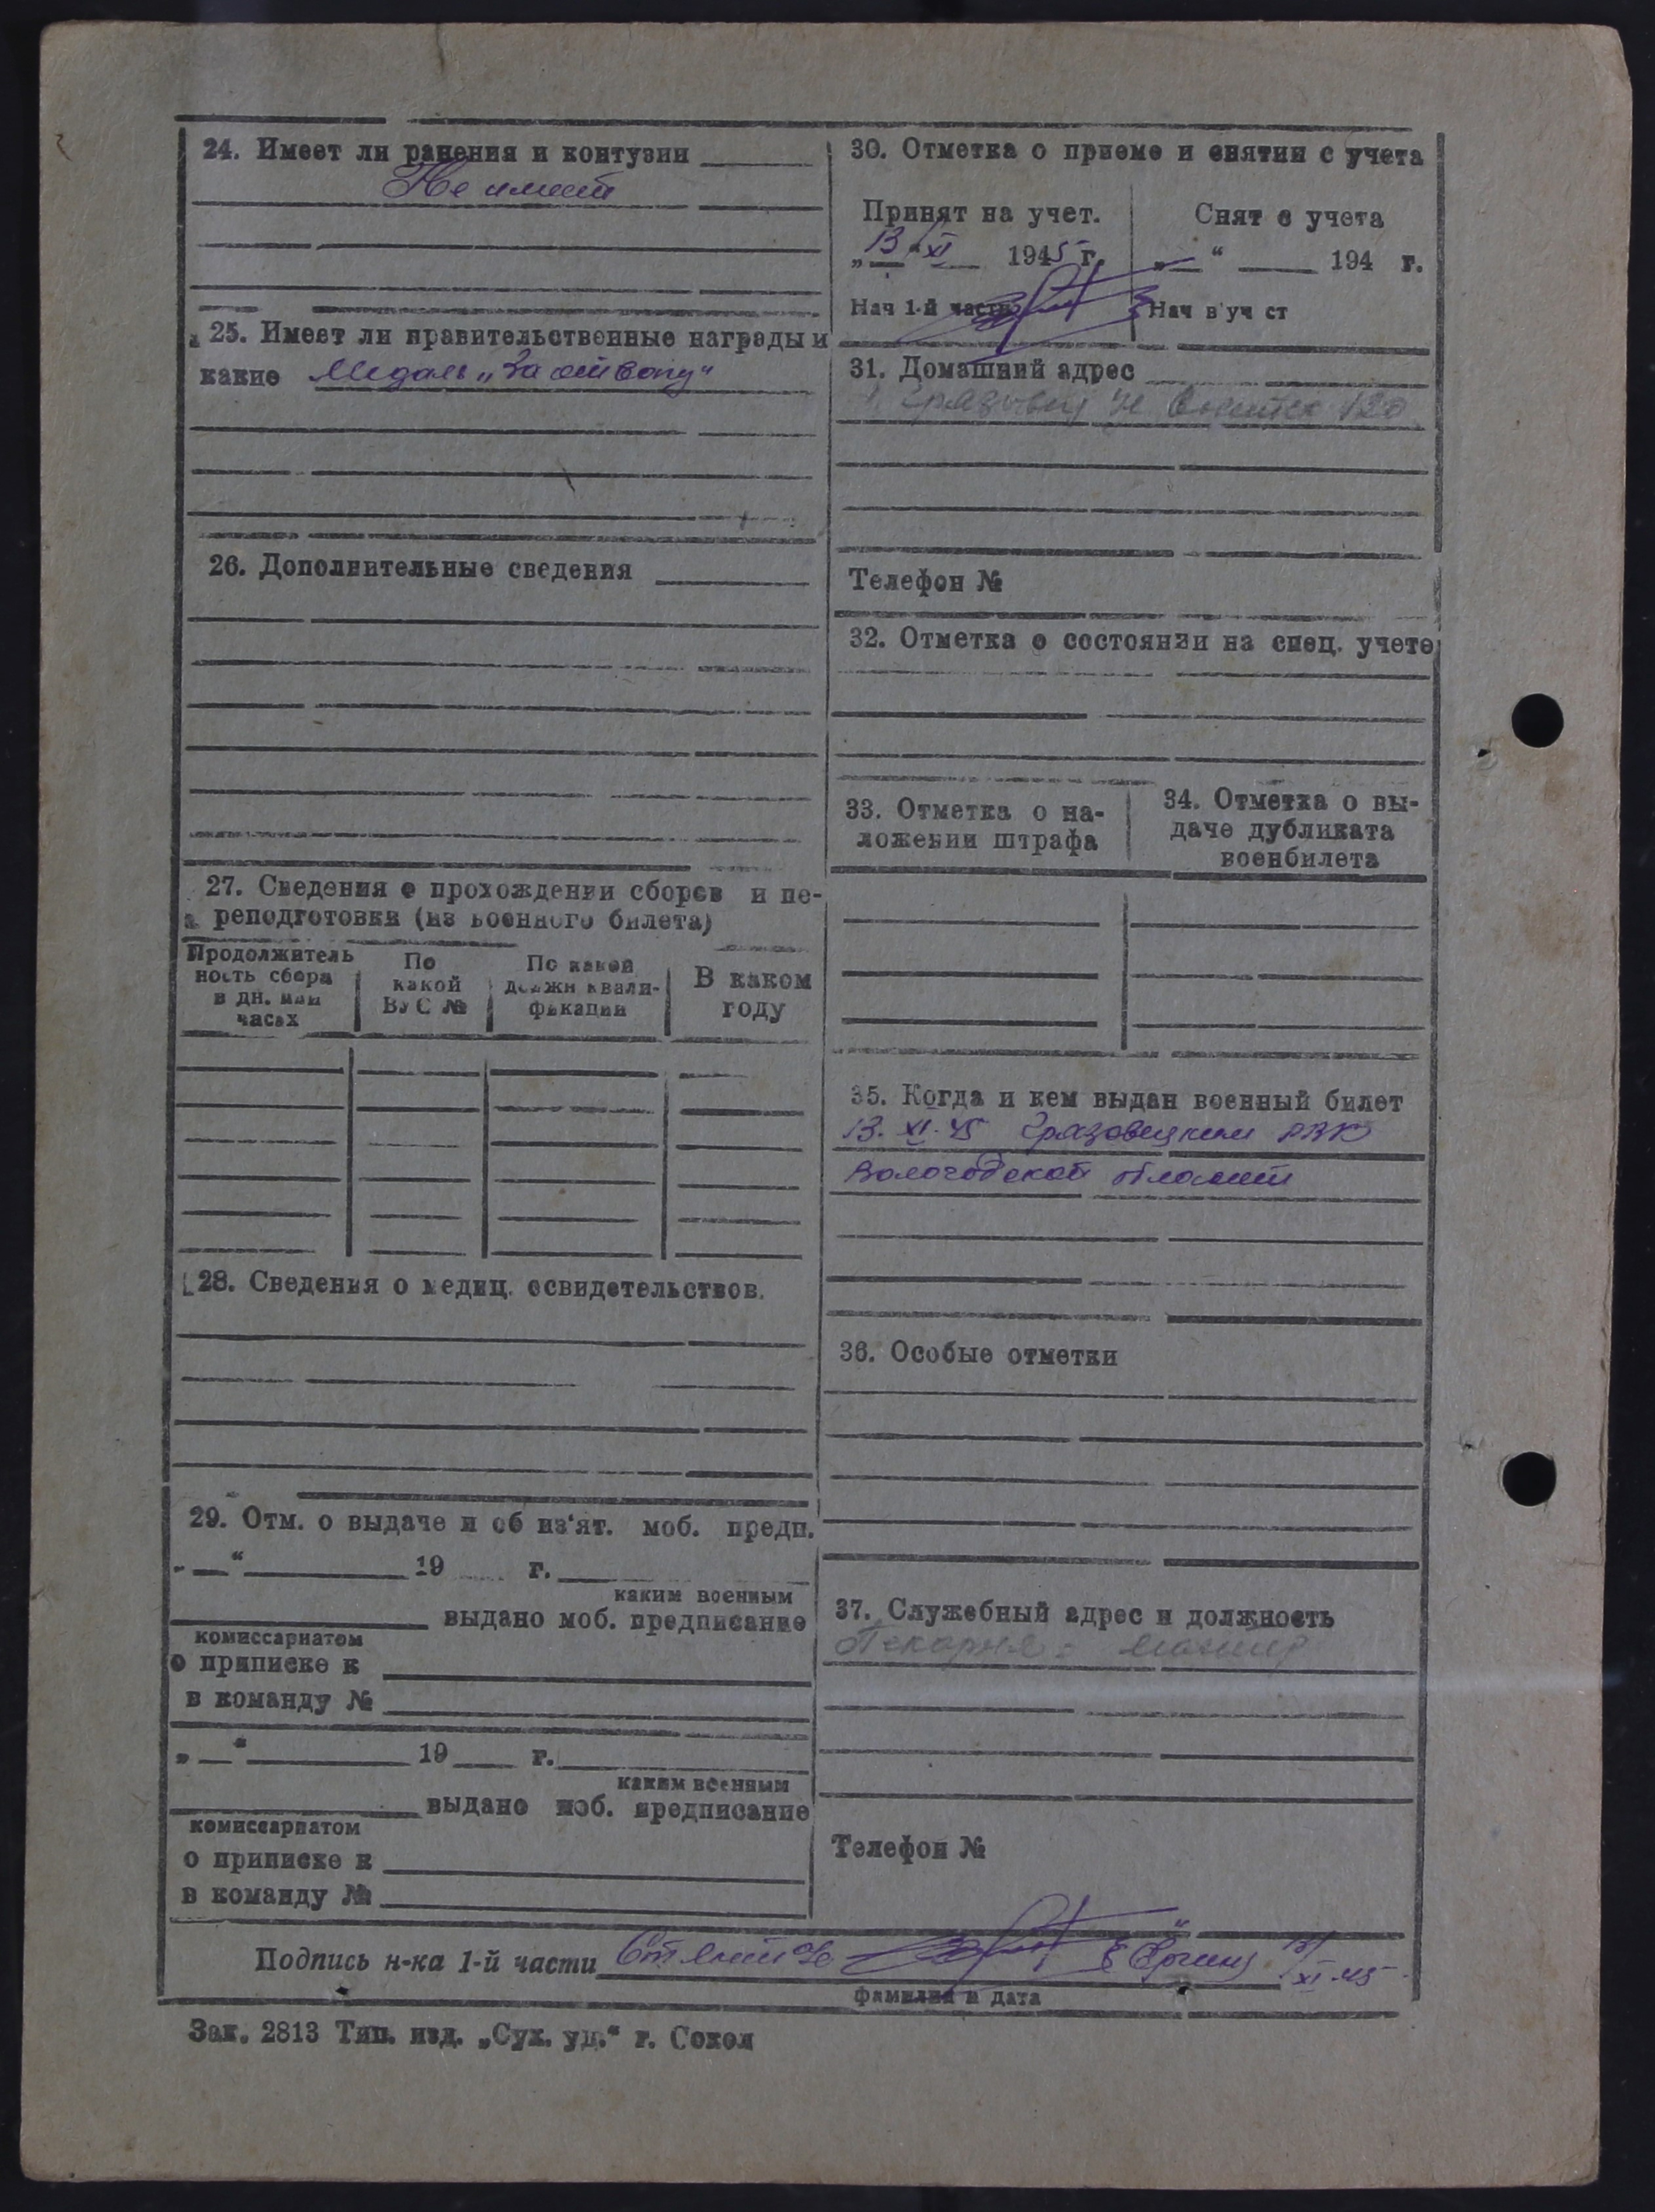 24. Имеет ли ранения и контузии
Не имеет
25. Имеет ли правительственные награды и
какие Медаль „За отвагу“
26. Дополнительные сведения
27. Сведения о прохождении сборов и пе-
реподготовки (из военного билета)
Продолжитель
ность сбора
в дн. или
часах
По
какой
ВУС №
По какой
должн квали-
фикации
В каком
году
28. Сведения о медиц. освидетельствов.
29. Отм. о выдаче и об из‘ят. моб. предп.
„ “ 19 г.
каким военным
выдано моб. предписание
комиссариатом
о приписке к
в команду №
„ “ 19 г.
каким военным
выдано моб. предписание
комиссариатом
о приписке к
в команду №
30. Отметка о приеме и снятии с учета
Принят на учет.
„13“ XI 1945 г.
Нач 1-й части
Снят с учета
„ “ 194 г.
Нач в уч ст
31. Домашний адрес
120
Телефон №
32. Отметка о состоянии на спец. учете
33. Отметка о на-
ложении штрафа
34. Отметка о вы-
даче дубликата
военбилета
35. Когда и кем выдан военный билет
13. XI. 45 Грязовецким РВК
Вологодской области
36. Особые отметки
37. Служебный адрес и должность
Пекарня
Телефон №
Подпись н-ка 1-й части Ст лейт
XI 45
фамилия и дата
Зак. 2813 Тип. изд. „Сух. уд.“ г. Сокол